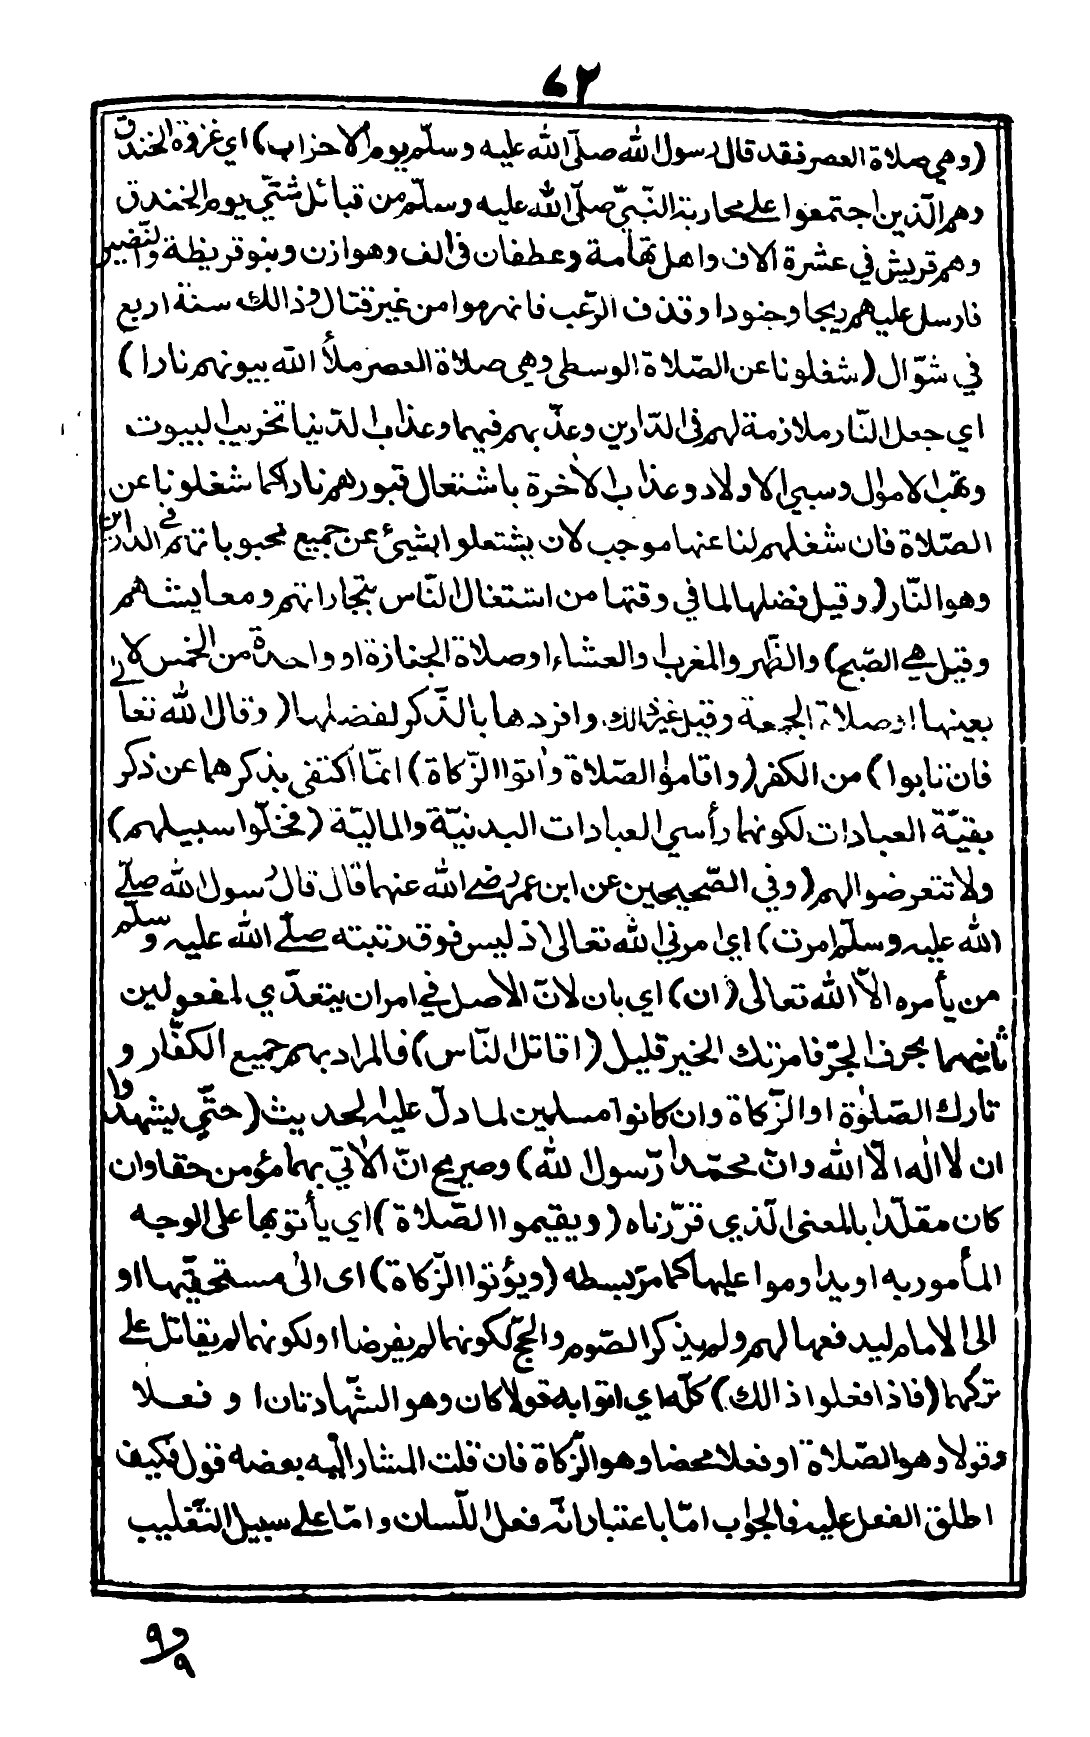 ٧٢
(وهي صلاة العصر فقد قال رسول الله صلّى الله عليه وسلّم يوم الاحزاب) اي غزوة الخندق
وهم الّذين اجتمعوا على محاربة النّبيّ صلّى الله عليه وسلّم من قبائل شتّى يوم الخندق
وهم قريش في عشرة آلاف واهل تهامة وعطفان في الف وهوازن وبنو قريظة والنّضير
فارسل عليهم ريحا وجنودا وقذف الرّعب فانهزموا من غير قتال وذالك سنة اربع
في شوّال (شغلونا عن الصّلاة الوسطى وهي صلاة العصر ملأ الله بيوتهم نارا)
اي جعل النّار ملازمة لهم في الدّارين وعذّبهم فيهما وعذاب الدّنيا تخريب البيوت
ونهب الاموال وسبي الاولاد وعذاب الآخرة باشتعال قبورهم نارا كما شغلونا عن
الصّلاة فان شغلهم لنا عنها موجب لان يشتعلوا بشيئ عن جميع محبوباتهم في الدارين
وهو النّار (وقيل فضلها لما في وقتها من اشتغال النّاس بتجاراتهم ومعايشهم
وقيل هي الصّبح) والظّهر والمغرب والعشاء او صلاة الجنازة او واحدة من الخمس لا
بعينها او صلاة الجمعة وقيل غير ذالك وافردها بالذّكر لفضلها (وقال الله تعالى
فان تابوا) من الكفر (واقاموا الصّلاة وآتوا الزّكاة) انمّا اكتفى بذكرهما عن ذكر
بقيّة العبادات لكونهما رأسي العبادات البدنيّة والماليّة (فخلّوا سبيلهم)
ولا تتعرضوا لهم (وفي الصّحيحين عن ابن عمر رضي الله عنهما قال قال رسول الله صلّى
الله عليه وسلّم امرت) اي امرني الله تعالى اذ ليس فوق رتبته صلّى الله عليه وسلّم
من يأمره الاّ الله تعالى (ان) اي بان لانّ الاصل في امر ان يتعدّي لمفعولين
ثانيهما بحرف الجرّ فامرتك الخير قليل (اقاتل النّاس) فالمراد بهم جميع الكفّار و
تارك الصّلوٰة او الزّكاة وان كانوا مسلمين لما دلّ عليه الحديث (حتّى يشهدوا
ان لا اله الاّ الله وانّ محمّدا رّسول الله) وصريح انّ الآتي بهما مؤمن حقا وان
كان مقلّدا بالمعنى الّذي قرّرناه (ويقيموا الصّلاة) اي يأتوبها على الوجه
المأمور به او يداوموا عليها كما مرّ بسطه (ويؤتوا الزّكاة) اى الى مستحقّيها او
الى الامام ليدفعها لهم ولم يذكر الصّوم والحجّ لكونهما لم يفرضا او لكونهما لم يقاتل على
تركهما (فاذا فعلوا ذالك) كلّه اي اتوا به قولا كان وهو الشّهادتان او فعلا
وقولا وهو الصّلاة او فعلا محضا وهو الزّكاة فان قلت المشار اليه بعضه قول فكيف
اطلق الفعل عليه فالجواب امّا باعتبار انّه فعل اللّسان وامّا على سبيل التّغليب